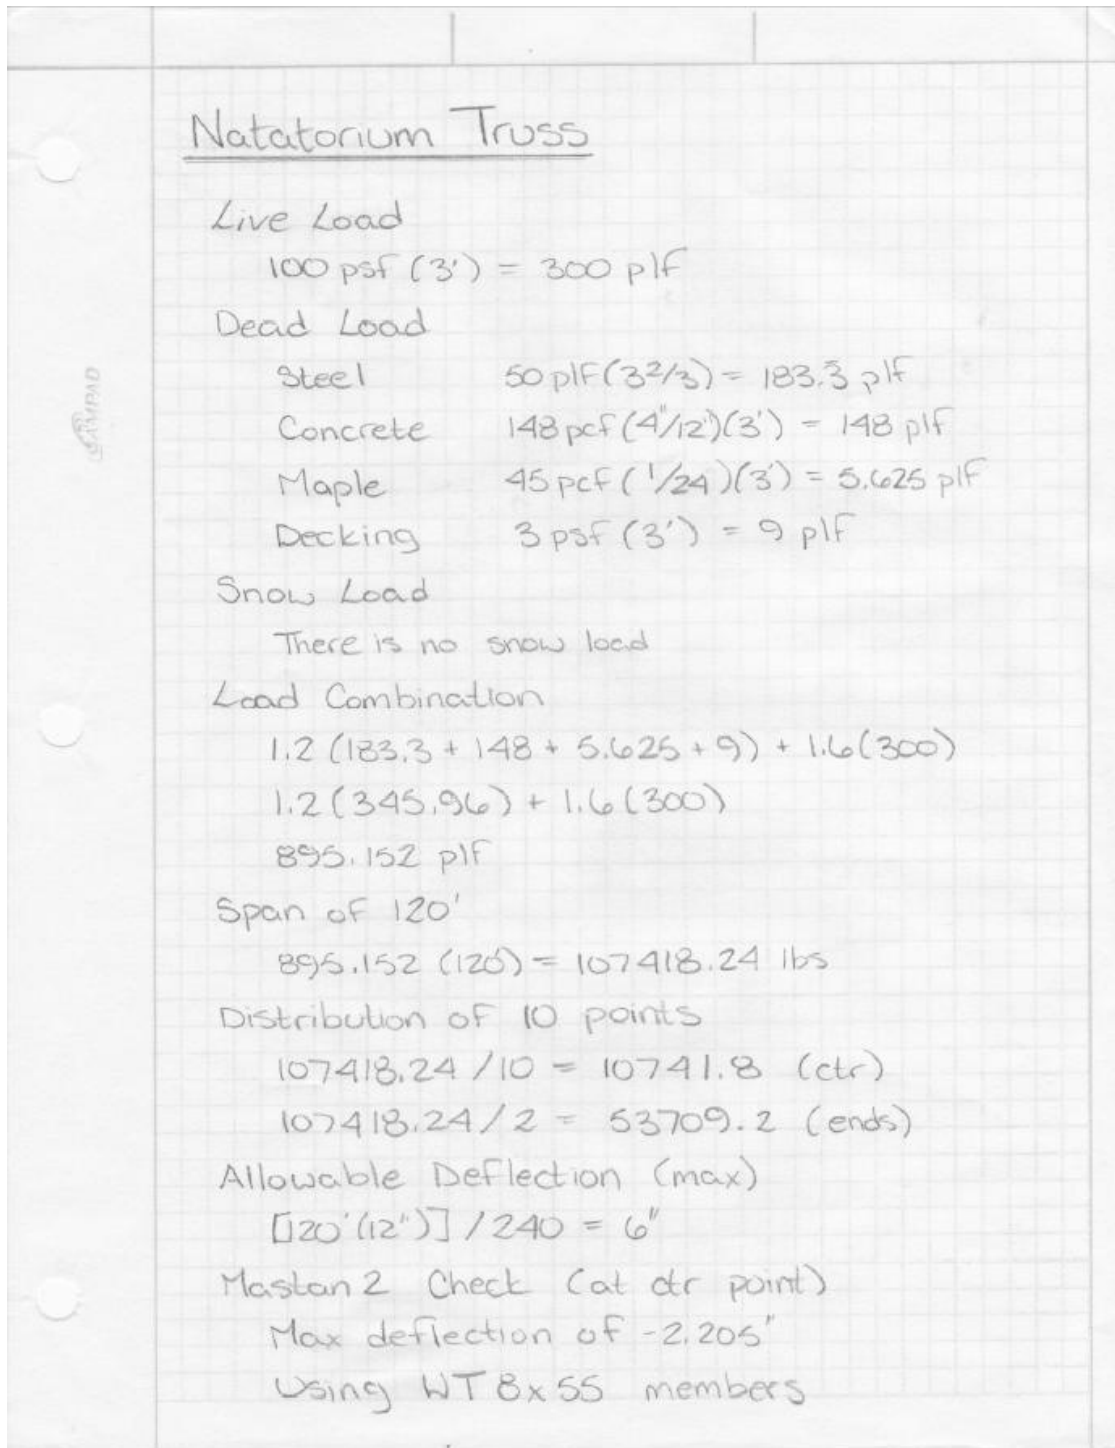 Natatorium Truss
Live Load
100 psf (3') = 300 plf
Dead Load
Steel 50 plf (3 2/3) = 183.3 plf
Concrete 148 pcf (4"/12")(3') = 148 plf
Maple 45 pcf (1/24)(3') = 5.625 plf
Decking 3 psf (3') = 9 plf
Snow Load
There is no snow load
Load Combination
1.2 (183.3 + 148 + 5.625 + 9) + 1.6 (300)
1.2 (345.96) + 1.6 (300)
895.152 plf
Span of 120'
895.152 (120') = 107418.24 lbs
Distribution of 10 points
107418.24 / 10 = 10741.8 (ctr)
107418.24 / 2 = 53709.2 (ends)
Allowable Deflection (max)
[120'(12")] / 240 = 6"
Mastan 2 Check (at ctr point)
Max deflection of -2.205"
Using WT 8x55 members
AMPAD